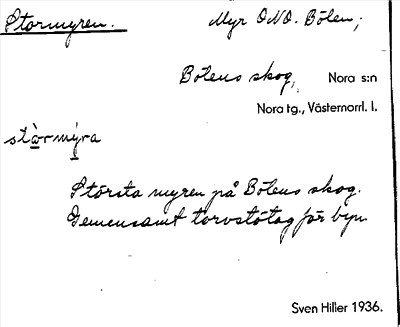 Stormyren. Myr ONO. Bölen;
Bölens skog, Nora s:n
Nora tg., Västernorrl. l.
stòrmýra
Största myren på Bölens skog.
Gemensamt torvströtag för byn
Sven Hiller 1936.